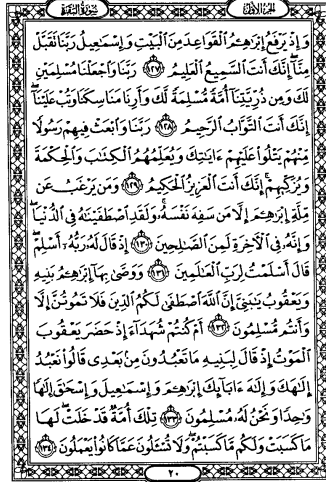 الجزء الأول سورة البقرة
وَإِذْ يَرْفَعُ إِبْرَٰهِـۧمُ ٱلْقَوَاعِدَ مِنَ ٱلْبَيْتِ وَإِسْمَـٰعِيلُ رَبَّنَا تَقَبَّلْ
مِنَّآ إِنَّكَ أَنتَ ٱلسَّمِيعُ ٱلْعَلِيمُ ١٢٧ رَبَّنَا وَٱجْعَلْنَا مُسْلِمَيْنِ
لَكَ وَمِن ذُرِّيَّتِنَآ أُمَّةً مُّسْلِمَةً لَّكَ وَأَرِنَا مَنَاسِكَنَا وَتُبْ عَلَيْنَآ
إِنَّكَ أَنتَ ٱلتَّوَّابُ ٱلرَّحِيمُ ١٢٨ رَبَّنَا وَٱبْعَثْ فِيهِمْ رَسُولًا
مِّنْهُمْ يَتْلُوا۟ عَلَيْهِمْ ءَايَـٰتِكَ وَيُعَلِّمُهُمُ ٱلْكِتَـٰبَ وَٱلْحِكْمَةَ
وَيُزَكِّيهِمْ إِنَّكَ أَنتَ ٱلْعَزِيزُ ٱلْحَكِيمُ ١٢٩ وَمَن يَرْغَبُ عَن
مِّلَّةِ إِبْرَٰهِـۧمَ إِلَّا مَن سَفِهَ نَفْسَهُۥ وَلَقَدِ ٱصْطَفَيْنَـٰهُ فِى ٱلدُّنْيَا
وَإِنَّهُۥ فِى ٱلْـَٔاخِرَةِ لَمِنَ ٱلصَّـٰلِحِينَ ١٣٠ إِذْ قَالَ لَهُۥ رَبُّهُۥٓ أَسْلِمْ
قَالَ أَسْلَمْتُ لِرَبِّ ٱلْعَـٰلَمِينَ ١٣١ وَوَصَّىٰ بِهَآ إِبْرَٰهِـۧمُ بَنِيهِ
وَيَعْقُوبُ يَـٰبَنِىَّ إِنَّ ٱللَّهَ ٱصْطَفَىٰ لَكُمُ ٱلدِّينَ فَلَا تَمُوتُنَّ إِلَّا
وَأَنتُم مُّسْلِمُونَ ١٣٢ أَمْ كُنتُمْ شُهَدَآءَ إِذْ حَضَرَ يَعْقُوبَ
ٱلْمَوْتُ إِذْ قَالَ لِبَنِيهِ مَا تَعْبُدُونَ مِنۢ بَعْدِى قَالُوا۟ نَعْبُدُ
إِلَـٰهَكَ وَإِلَـٰهَ ءَابَآئِكَ إِبْرَٰهِـۧمَ وَإِسْمَـٰعِيلَ وَإِسْحَـٰقَ إِلَـٰهًا
وَٰحِدًا وَنَحْنُ لَهُۥ مُسْلِمُونَ ١٣٣ تِلْكَ أُمَّةٌ قَدْ خَلَتْ لَهَا
مَا كَسَبَتْ وَلَكُم مَّا كَسَبْتُمْ وَلَا تُسْـَٔلُونَ عَمَّا كَانُوا۟ يَعْمَلُونَ ١٣٤
٢٠